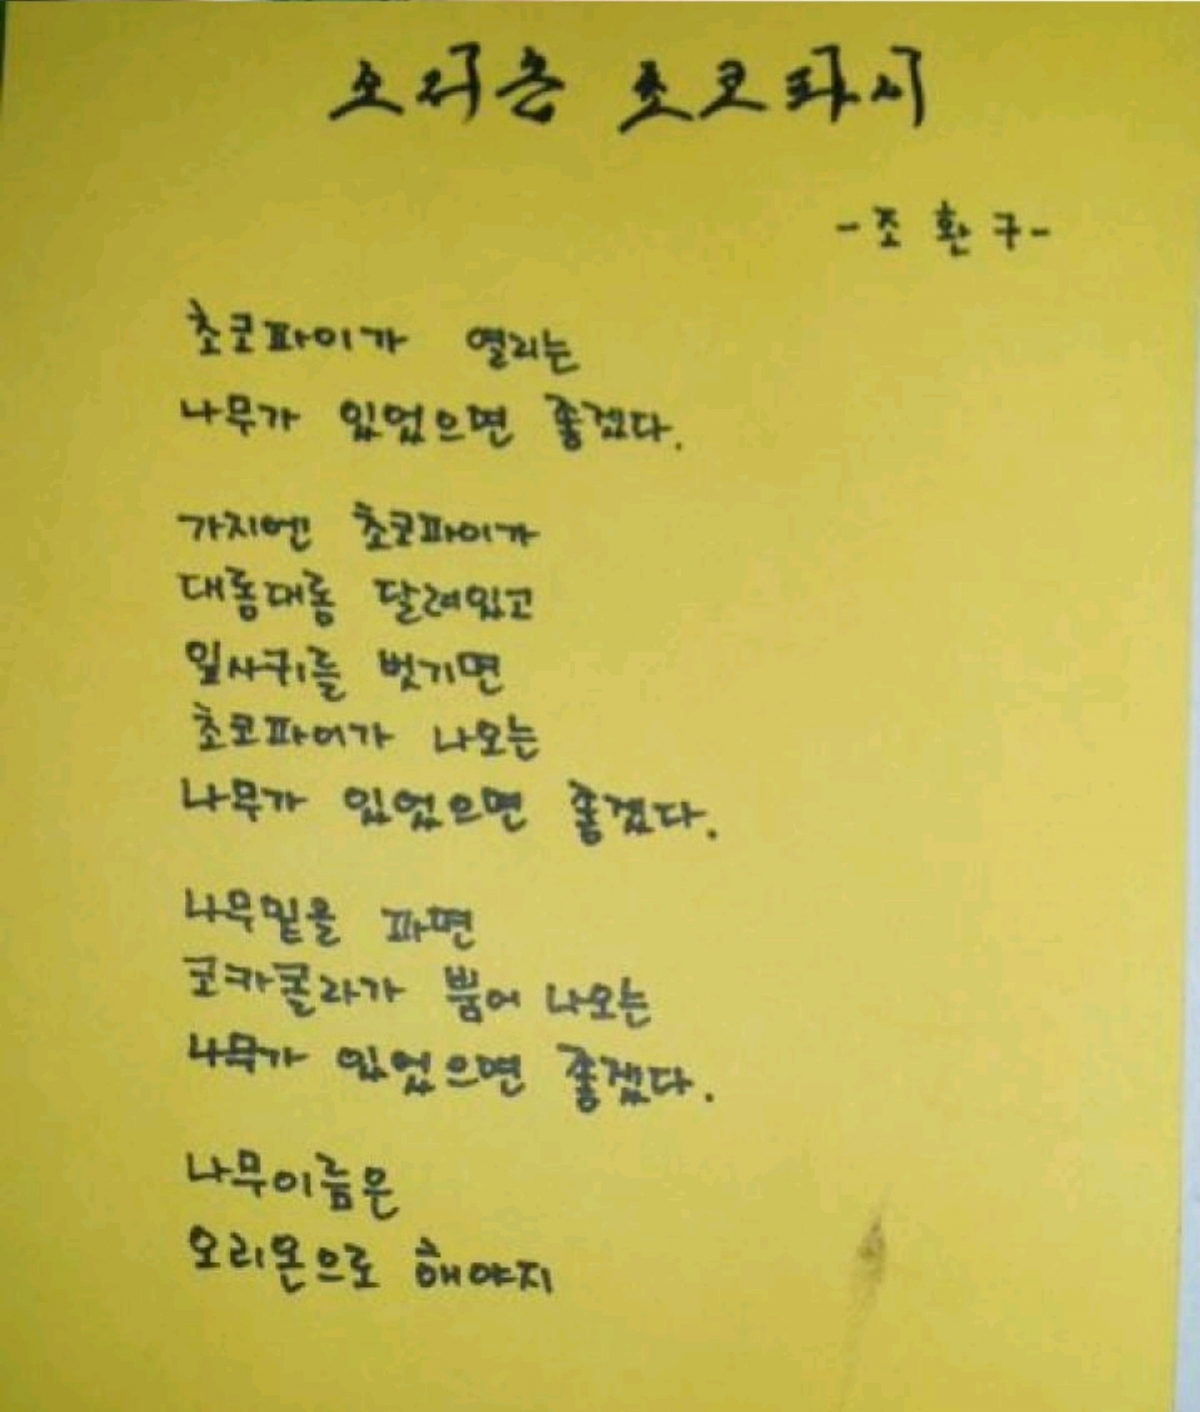 오리온 초코파이
-조환구-
초코파이가 열리는
나무가 있었으면 좋겠다.
가지엔 초코파이가
대롱대롱 달려있고
잎사귀를 벗기면
초코파이가 나오는
나무가 있었으면 좋겠다.
나무밑을 파면
코카콜라가 뿜어 나오는
나무가 있었으면 좋겠다.
나무이름은
오리온으로 해야지